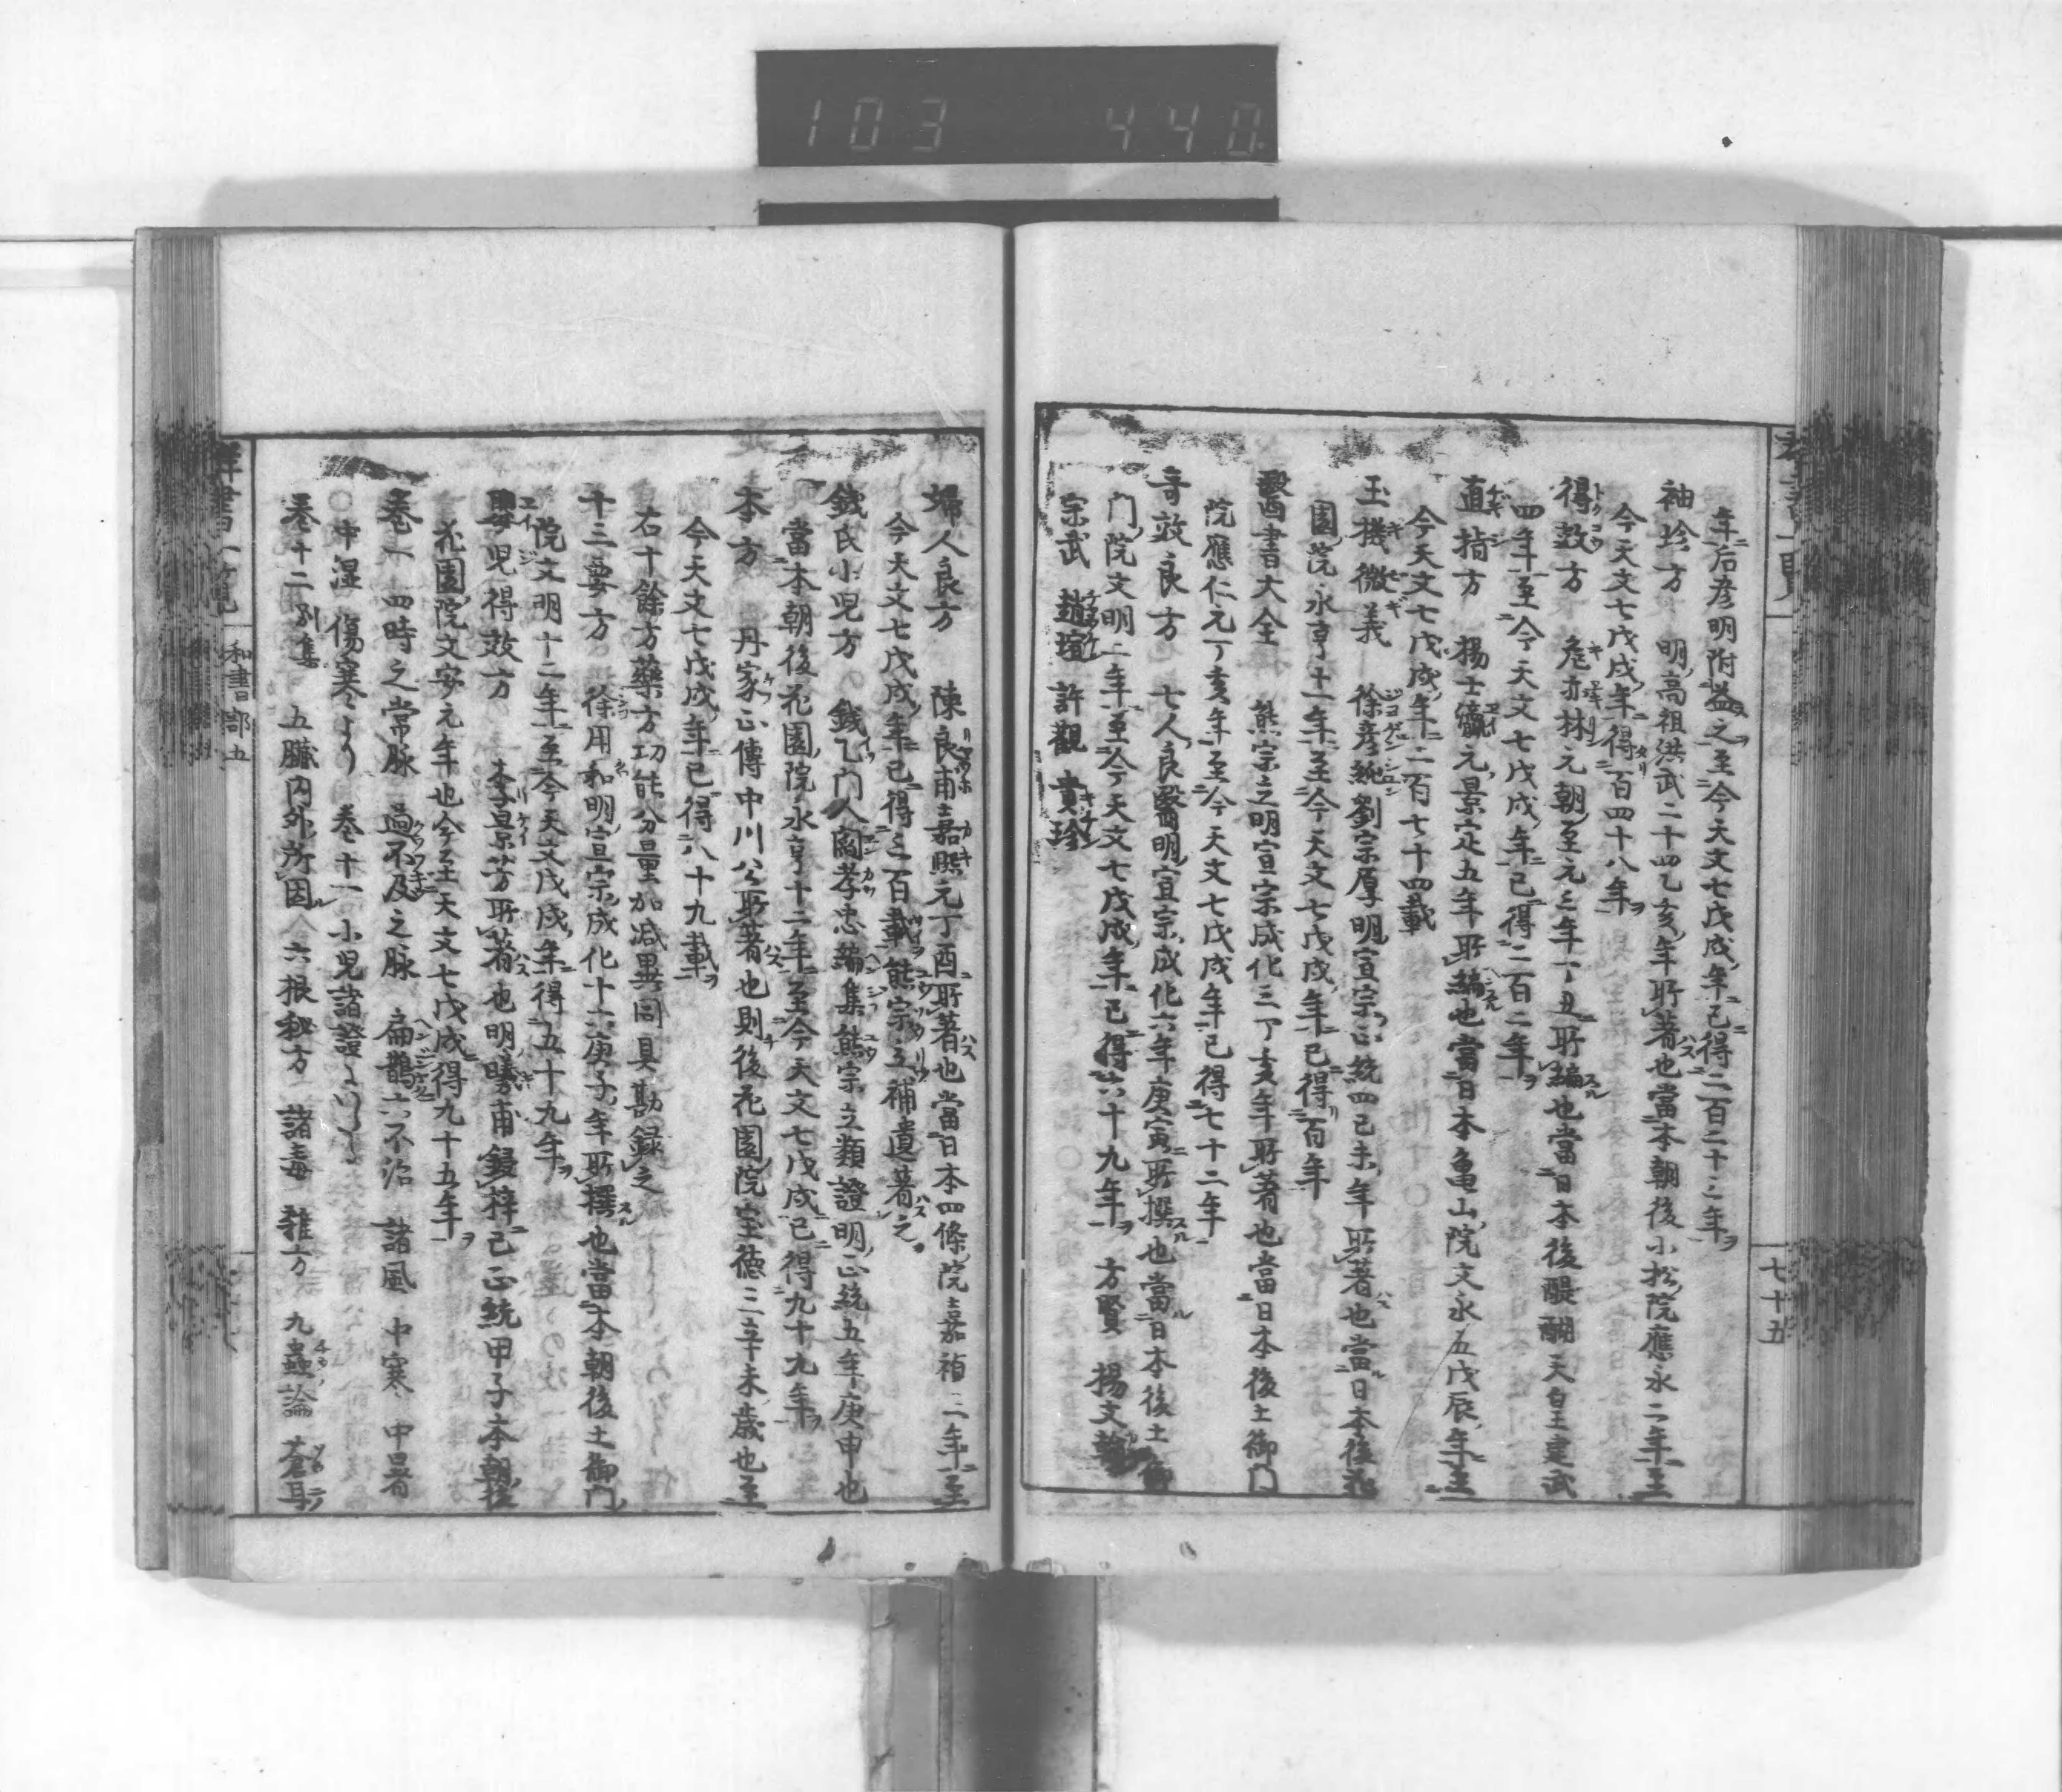 103 440
七十五
年后彦明附益之至今天文七戊戌年已得二百二十三年
袖珍方 明高祖洪武二十四乙亥年所著也當本朝後小松院應永二年至
今天文七戊戌年得百四十八年
得效方 危亦林元朝至元三年丁丑所編也當日本後醍醐天皇建武
四年至今天文七戊戌年已得二百二年
直指方 楊士瀛元景定五年所編也當日本亀山院文永五戊辰年至
今天文七戊戌年二百七十四載
玉機微義 徐彦純劉宗厚明宣宗正統四己未年所著也當日本後花
園院永享十一年至今天文七戊戌年已得百年
醫書大全 熊宗立明宣宗成化三丁亥年所著也當日本後土御门
院應仁元丁亥年至今天文七戊戌年已得七十二年
奇效良方 七人良醫明宣宗成化六年庚寅所撰也當日本後土御
门院文明二年至今天文七戊戌年已得六十九年 方賢 楊文翰
宗武 趙瑄 許觀 貴珍
婦人良方 陳良甫嘉熙元丁酉所著也當日本四條院嘉禎三年至
今天文七戊戌年已得三百載熊宗立補遺著之
錢氏小児方 錢乙门人閻孝忠編集熊宗立類證明正統五年庚申也
當本朝後花園院永享十二年至今天文七戊戌已得九十九年
本方 丹家正傳中川公所著也則後花園院宝徳三辛未歳也至
今天文七戊戌年已得八十九載
右十餘方藥方功能分量加减異同具勘録之
十三要方 徐用和明宣宗成化十六庚子年所撰也當本朝後土御门
院文明十二年至今天文戊戌年得五十九年
嬰児得效方 李景芳所著也明曦甫鋟梓已正統甲子本朝後
花園院文安元年也今至天文七戊戌得九十五年
卷一 四時之常脉 過不及之脉 扁鵲六不治 諸風 中寒 中暑
中湿 傷寒より 卷十一小児諸證まで
卷十二別集 五臓内外所因 六根秘方 諸毒 雜方 九蟲論 蒼耳
群書一覧 和書部五